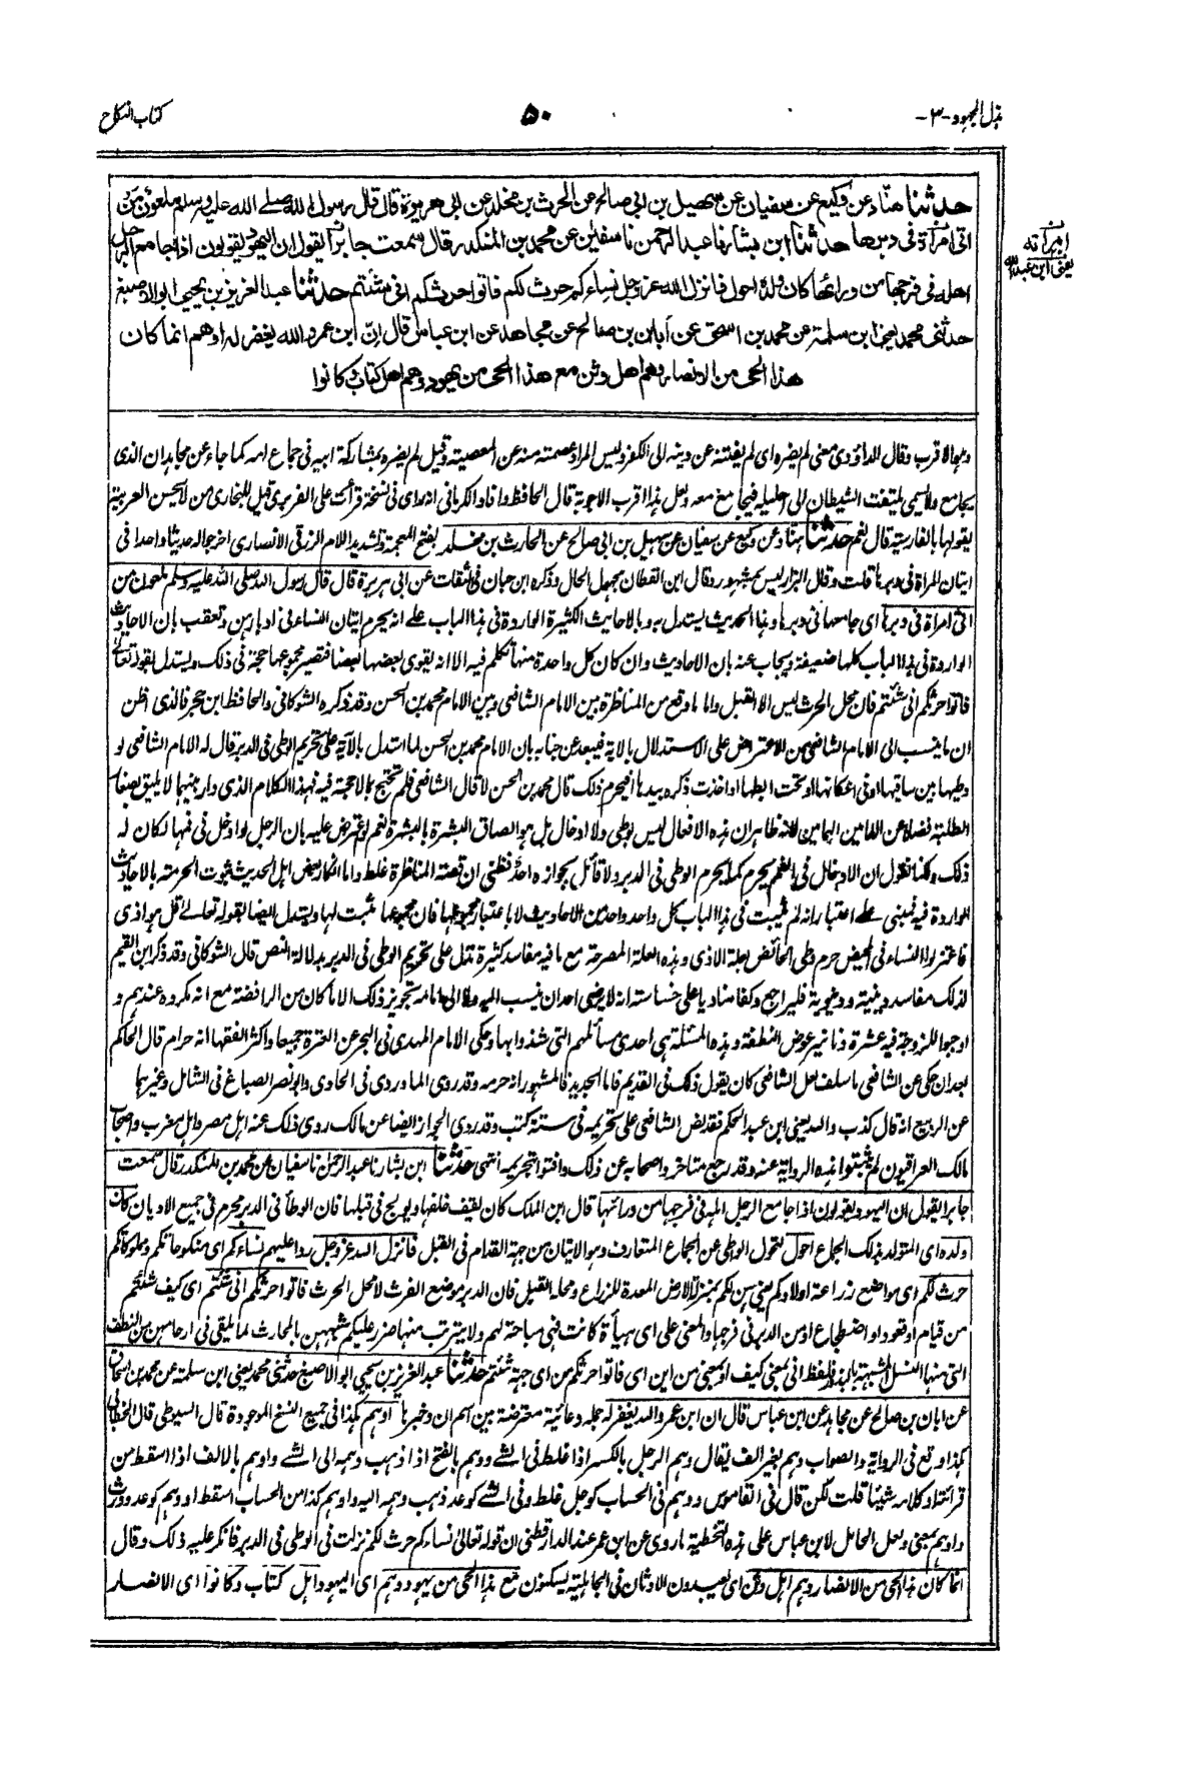 بذل المجہود -۳-
۵۰
کتاب النکاح
حدثنا هنّاد عن وكيع عن سفيان عن سهيل بن ابى صالح عن الحرث بن مخلد عن ابى هريرة قال قال رسول الله صلے الله عليه وسلم ملعون مَنْ
اتى امرأة فى دبرها حدثنا ابن بشار نا عبد الرحمن نا سفين عن محمد بن المنكدر قال سمعت جابرًا يقول ان اليهود يقولون اذا جامع الرجل
اهله فى فرجها من ورائها كان ولده احول فانزل الله عز وجل نساءكم حرث لكم فاتوا حرثكم انى شئتم حدثنا عبد العزيز بن يحيى ابو الاصبغ
حدثنى محمد يعنى ابن سلمة عن محمد بن اسحق عن أبان بن صالح عن مجاهد عن ابن عباس قال انّ ابن عمر والله يغفر له اوهم انما كان
هذا الحى من الانصار وهم اهل وثن مع هذا الحى من يهود وهم اهل كتاب وكانوا
امرأته
يعنى ابن عبد الله
وقال الداؤدى معنى لم يضره اى لم يفتنه عن دينه الى الكفر وليس المراد عصمته منه عن المعصية وقيل لم يضره بمشاركة ابيه فى جماع امه كما جاء عن مجاهد ان الذى
يجامع ولا يسمى يلتفت الشيطان الى احليله فيجامع معه ولعل هذا اقرب الاجوبة قال الحافظ وافاد الكرمانى انه راى فى نسخة قرأت على الفربرى قيل للبخارى من لا يحسن العربية
يقولها بالفارسية قال نعم حدثنا هناد عن وكيع عن سفيان عن سهيل بن ابى صالح عن الحارث بن مخلد بفتح المعجمة وتشديد اللام الزرقى الانصارى اخرجا له حديثا واحدا فى
اتيان المرأة فى دبرها قلت وقال البزار ليس بمشهور وقال ابن القطان مجهول الحال وذكره ابن حبان فى الثقات عن ابى هريرة قال قال رسول الله صلى الله عليه وسلم ملعون من
اتى امرأة فى دبرها اى جامعها فى دبرها وهذا الحديث يستدل به وبالاحاديث الكثيرة الواردة فى هذا الباب على انه يحرم اتيان النساء فى ادبارهن وتعقب بان الاحاديث
الواردة فى هذا الباب كلها ضعيفة ويجاب عنه بان الاحاديث وان كان كل واحدة منها تكلم فيه الا انه يقوى بعضها بعضا فتصير مجموعها حجة فى ذلك ويستدل بقوله تعالى
فاتوا حرثكم انى شئتم فان محل الحرث ليس الا القبل واما ما وقع من المناظرة بين الامام الشافعى وبين الامام محمد بن الحسن وقد ذكره الشوكانى والحافظ ابن حجر فالذى اظن
ان ما ينسب الى الامام الشافعى من الاعتراض على الاستدلال بالاية فبعيد عن جنابه بان الامام محمد بن الحسن لما استدل بالآية على تحريم الوطى فى الدبر قال له الامام الشافعى لو
وطيها بين ساقيها او فى اعكانها او تحت ابطها او اخذت ذكره بيدها أفيحرم ذلك قال محمد بن الحسن لا قال الشافعى فلم تحتج بما لا حجة فيه فهذا الكلام الذى دار بينهما لا يليق بصغار
الطلبة فضلا عن الامامين الهمامين لانه ظاهر ان هذه الافعال ليس بوطى ولا ادخال بل هو الصاق البشرة بالبشرة نعم لو يعترض عليه بان الرجل لو ادخل فى فمها لكان له
ذلك وكنا نقول ان الادخال فى الفم يحرم كما يحرم الوطى فى الدبر ولا قائل بجوازه احد فظنى ان قصة المناظرة غلط واما انكار بعض اهل الحديث ثبوت الحرمة بالاحاديث
الواردة فيه فمبنى على اعتبار انه لم يثبت فى هذا الباب بكل واحد واحد من الاحاديث لا باعتبار مجموعها فان مجموعها مثبت لها ويستدل ايضا بقوله تعالى قل هو اذى
فاعتزلوا النساء فى المحيض حرم وطى الحائض بعلة الاذى وهذه العلة المصرحة مع ما فيه مفاسد كثيرة تدل على تحريم الوطى فى الدبر بدلالة النص قال الشوكانى وقد ذكر ابن القيم
لذلك مفاسد دينية ودنيوية فليراجع وكفى مناديا على خساسته انه لا يرضى احد ان ينسب اليه ولا الى امامه تجويز ذلك الا ما كان من الرافضة مع انه مكروه عندهم و
اوجبوا للزوجة فيه عشرة دنانير عوض النطفة وهذه المسئلة هى احدى مسائلهم التى شذوا بها وحكى الامام المهدى فى البحر عن العترة جميعا واكثر الفقهاء انه حرام قال الحاكم
بعد ان حكى عن الشافعى ما سلف لعل الشافعى كان يقول ذلك فى القديم فاما الجديد فالمشهور انه حرمه وقد روى الماوردى فى الحاوى وابو نصر الصباغ فى الشامل وغيرهما
عن الربيع انه قال كذب والله يعنى ابن عبد الحكم فقد نص الشافعى على تحريمه فى ستة كتب وقد روى الجواز ايضا عن مالك روى ذلك عنه اهل مصر واهل مغرب واصحاب
مالك العراقيون لم يثبتوا هذه الرواية عنه وقد رجع متاخرو اصحابه عن ذلك وافتوا بتحريمه انتهى حدثنا ابن بشار نا عبد الرحمن نا سفيان عن محمد بن المنكدر قال سمعت
جابرا يقول ان اليهود يقولون اذا جامع الرجل اهله فى فرجها من ورائها قال ابن الملك كان يقف خلفها ويولج فى قبلها فان الوطأ فى الدبر محرم فى جميع الاديان كان
ولده اى المتولد بذلك الجماع احول لتحول الوطى عن الجماع المتعارف وهو الاتيان من جهة القدام فى القبل فانزل الله عز وجل ردا عليهم نساءكم اى منكوحاتكم ومملوكاتكم
حرث لكم اى مواضع زراعة اولادكم يعنى هن لكم بمنزلة الارض المعدة للزراع ومحله القبل فان الدبر موضع الفرث لا محل الحرث فاتوا حرثكم انى شئتم اى كيف شئتم
من قيام او قعود او اضطجاع او من الدبر فى فرجها والمعنى على اى هيأة كانت فهى مباحة لهم ولا يترتب منها ضرر عليكم شبههن بالمحارث لما يلقى فى ارحامهن من النطف
التى منها النسل المشبهة بالبذر فلفظ انى بمعنى كيف او بمعنى من اين اى فاتوا حرثكم من اى جهة شئتم حدثنا عبد العزيز بن يحيى ابو الاصبغ حدثنى محمد يعنى ابن سلمة عن محمد بن اسحاق
عن ابان بن صالح عن مجاهد عن ابن عباس قال ان ابن عمر والله يغفر له جملة دعائية معترضة بين اسم ان وخبرها اوهم هكذا فى جميع النسخ الموجودة قال السيوطى قال الخطابى
هكذا وقع فى الرواية والصواب وهم بغير الف يقال وهم الرجل بالكسر اذا غلط فى الشے ووهم بالفتح اذا ذهب وهمه الى الشے واوهم بالالف اذا اسقط من
قراءته او كلامه شيئا قلت لكن قال فى القاموس ووهم فى الحساب كوجل غلط وفى الشے كوعد ذهب وهمه اليه واوهم كذا من الحساب اسقط او وهم كوعد وورث
واوهم بمعنى ولعل الحامل لابن عباس على هذه التخطية ما روى عن ابن عمر عند الدارقطنى ان قوله تعالى نساءكم حرث لكم نزلت فى الوطى فى الدبر فانكر عليه ذلك وقال
انما كان هذا الحى من الانصار وهم اهل وثن اى يعبدون الاوثان فى الجاهلية يسكنون مع هذا الحى من يهود وهم اى اليهود اهل كتاب وكانوا اى الانصار